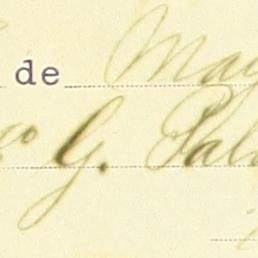 de May
G. Pal